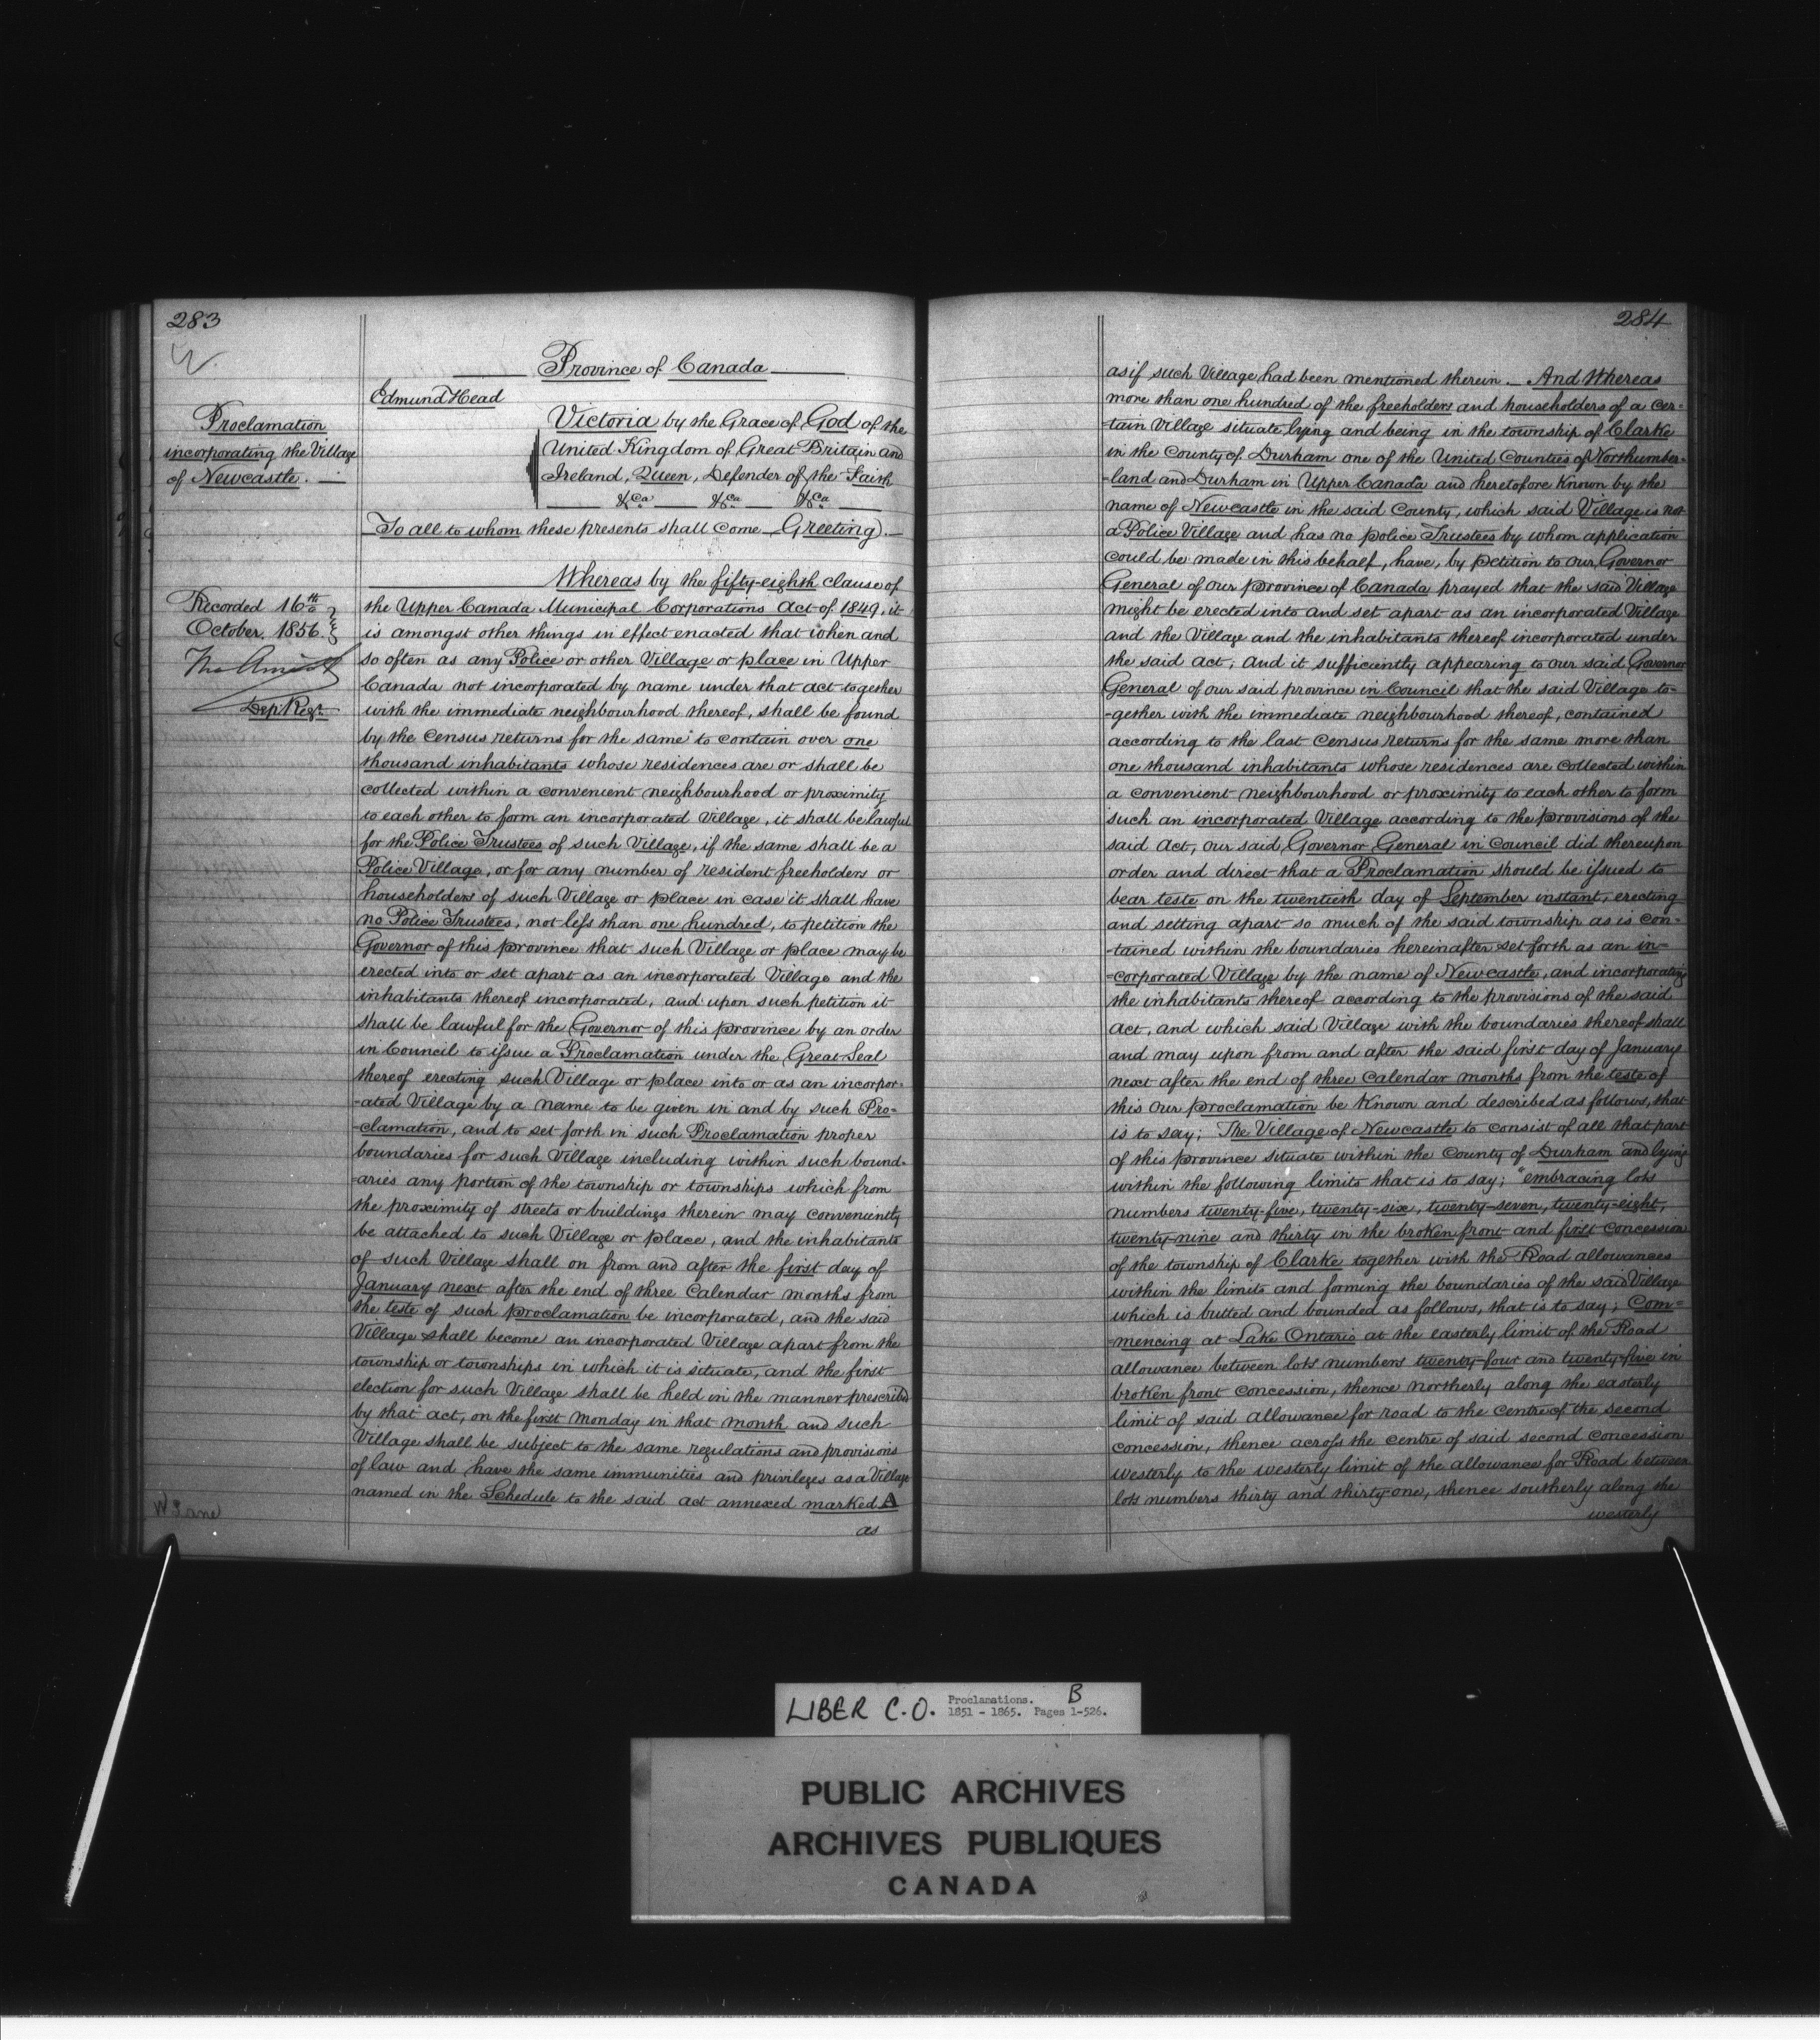 283
Province of Canada
Edmund Head
Proclamation
incorporating the Village
of Newcastle.
Victoria by the Grace of God of the
United Kingdom of Great Britain and
Ireland, Queen, Defender of the Faith
&ca &ca &ca
To all to whom these presents shall come Greeting.
Recorded 16th
October. 1856.
Dep Regr
Whereas by the fifty-eighth clause of
the Upper Canada Municipal Corporations Act of 1849, it
is amongst other things in effect enacted that when and
so often as any Police or other Village or place in Upper
Canada not incorporated by name under that act together
with the immediate neighbourhood thereof, shall be found
by the Census returns for the same to contain over one
thousand inhabitants whose residences are or shall be
collected within a convenient neighbourhood or proximity
to each other to form an incorporated Village, it shall be lawful
for the Police Trustees of such Village, if the same shall be a
Police Village, or for any number of resident freeholders or
householders of such Village or place in case it shall have
no Police Trustees, not less than one hundred, to petition the
Governor of this province that such Village or place may be
erected into or set apart as an incorporated Village and the
inhabitants thereof incorporated, and upon such petition it
shall be lawful for the Governor of this province by an order
in Council to issue a Proclamation under the Great Seal
thereof erecting such Village or place into or as an incorpor-
-ated Village by a name to be given in and by such Pro=
-clamation, and to set forth in such Proclamation proper
boundaries for such Village including within such bound-
-aries any portion of the township or townships which from
the proximity of streets or buildings therein may conveniently
be attached to such Village or place, and the inhabitants
of such Village shall on from and after the first day of
January next after the end of three Calendar months from
the teste of such proclamation be incorporated, and the said
Village shall become an incorporated Village apart from the
township or townships in which it is situate, and the first
election for such Village shall be held in the manner prescribed
by that act, on the first Monday in that month and such
Village shall be subject to the same regulations and provisions
of law and have the same immunities and privileges as a Village
named in the Schedule to the said act annexed marked A
as
W Lane
284
as if such Village had been mentioned therein. And Whereas
more than one hundred of the freeholders and householders of a cer=
-tain Village situate lying and being in the township of Clarke
in the County of Durham one of the United Counties of Northumber-
-land and Durham in Upper Canada and heretofore Known by the
name of Newcastle in the said County, which said Village is not
a Police Village and has no police Trustees by whom application
could be made in this behalf, have, by petition to our Governor
General of our province of Canada prayed that the said Village
might be erected into and set apart as an incorporated Village
and the Village and the inhabitants thereof incorporated under
the said act; and it sufficiently appearing to our said Governor
General of our said province in Council that the said Village to-
-gether with the immediate neighbourhood thereof, contained
according to the last Census returns for the same more than
one thousand inhabitants whose residences are collected within
a convenient neighbourhood or proximity to each other to form
such an incorporated Village according to the provisions of the
said Act, our said Governor General in Council did thereupon
order and direct that a Proclamation should be issued to
bear teste on the twentieth day of September instant, erecting
and setting apart so much of the said township as is con-
-tained within the boundaries hereinafter set forth as an in=
=corporated Village by the name of Newcastle, and incorporating
the inhabitants thereof according to the provisions of the said
act, and which said Village with the boundaries thereof shall
and may upon from and after the said first day of January
next after the end of three Calendar months from the teste of
this our proclamation be Known and described as follows, that
is to say; The Village of Newcastle to consist of all that part
of this province situate within the County of Durham and lying
within the following limits that is to say; "embracing lots
numbers twenty-five, twenty-six, twenty-seven, twenty-eight,
twenty-nine and thirty in the broken front and first concession
of the township of Clarke together with the Road allowances
within the limits and forming the boundaries of the said Village
which is butted and bounded as follows, that is to say; Com=
-mencing at Lake Ontario at the easterly limit of the Road
allowance between lots numbers twenty-four and twenty-five in
broken front concession, thence northerly along the easterly
limit of said allowance for road to the centre of the second
concession, thence across the centre of said second concession
westerly to the westerly limit of the allowance for Road between
lots numbers thirty and thirty-one, thence southerly along the
westerly
LIBER C.O. Proclamations. B
1851 - 1865. Pages 1-526.
PUBLIC ARCHIVES
ARCHIVES PUBLIQUES
CANADA